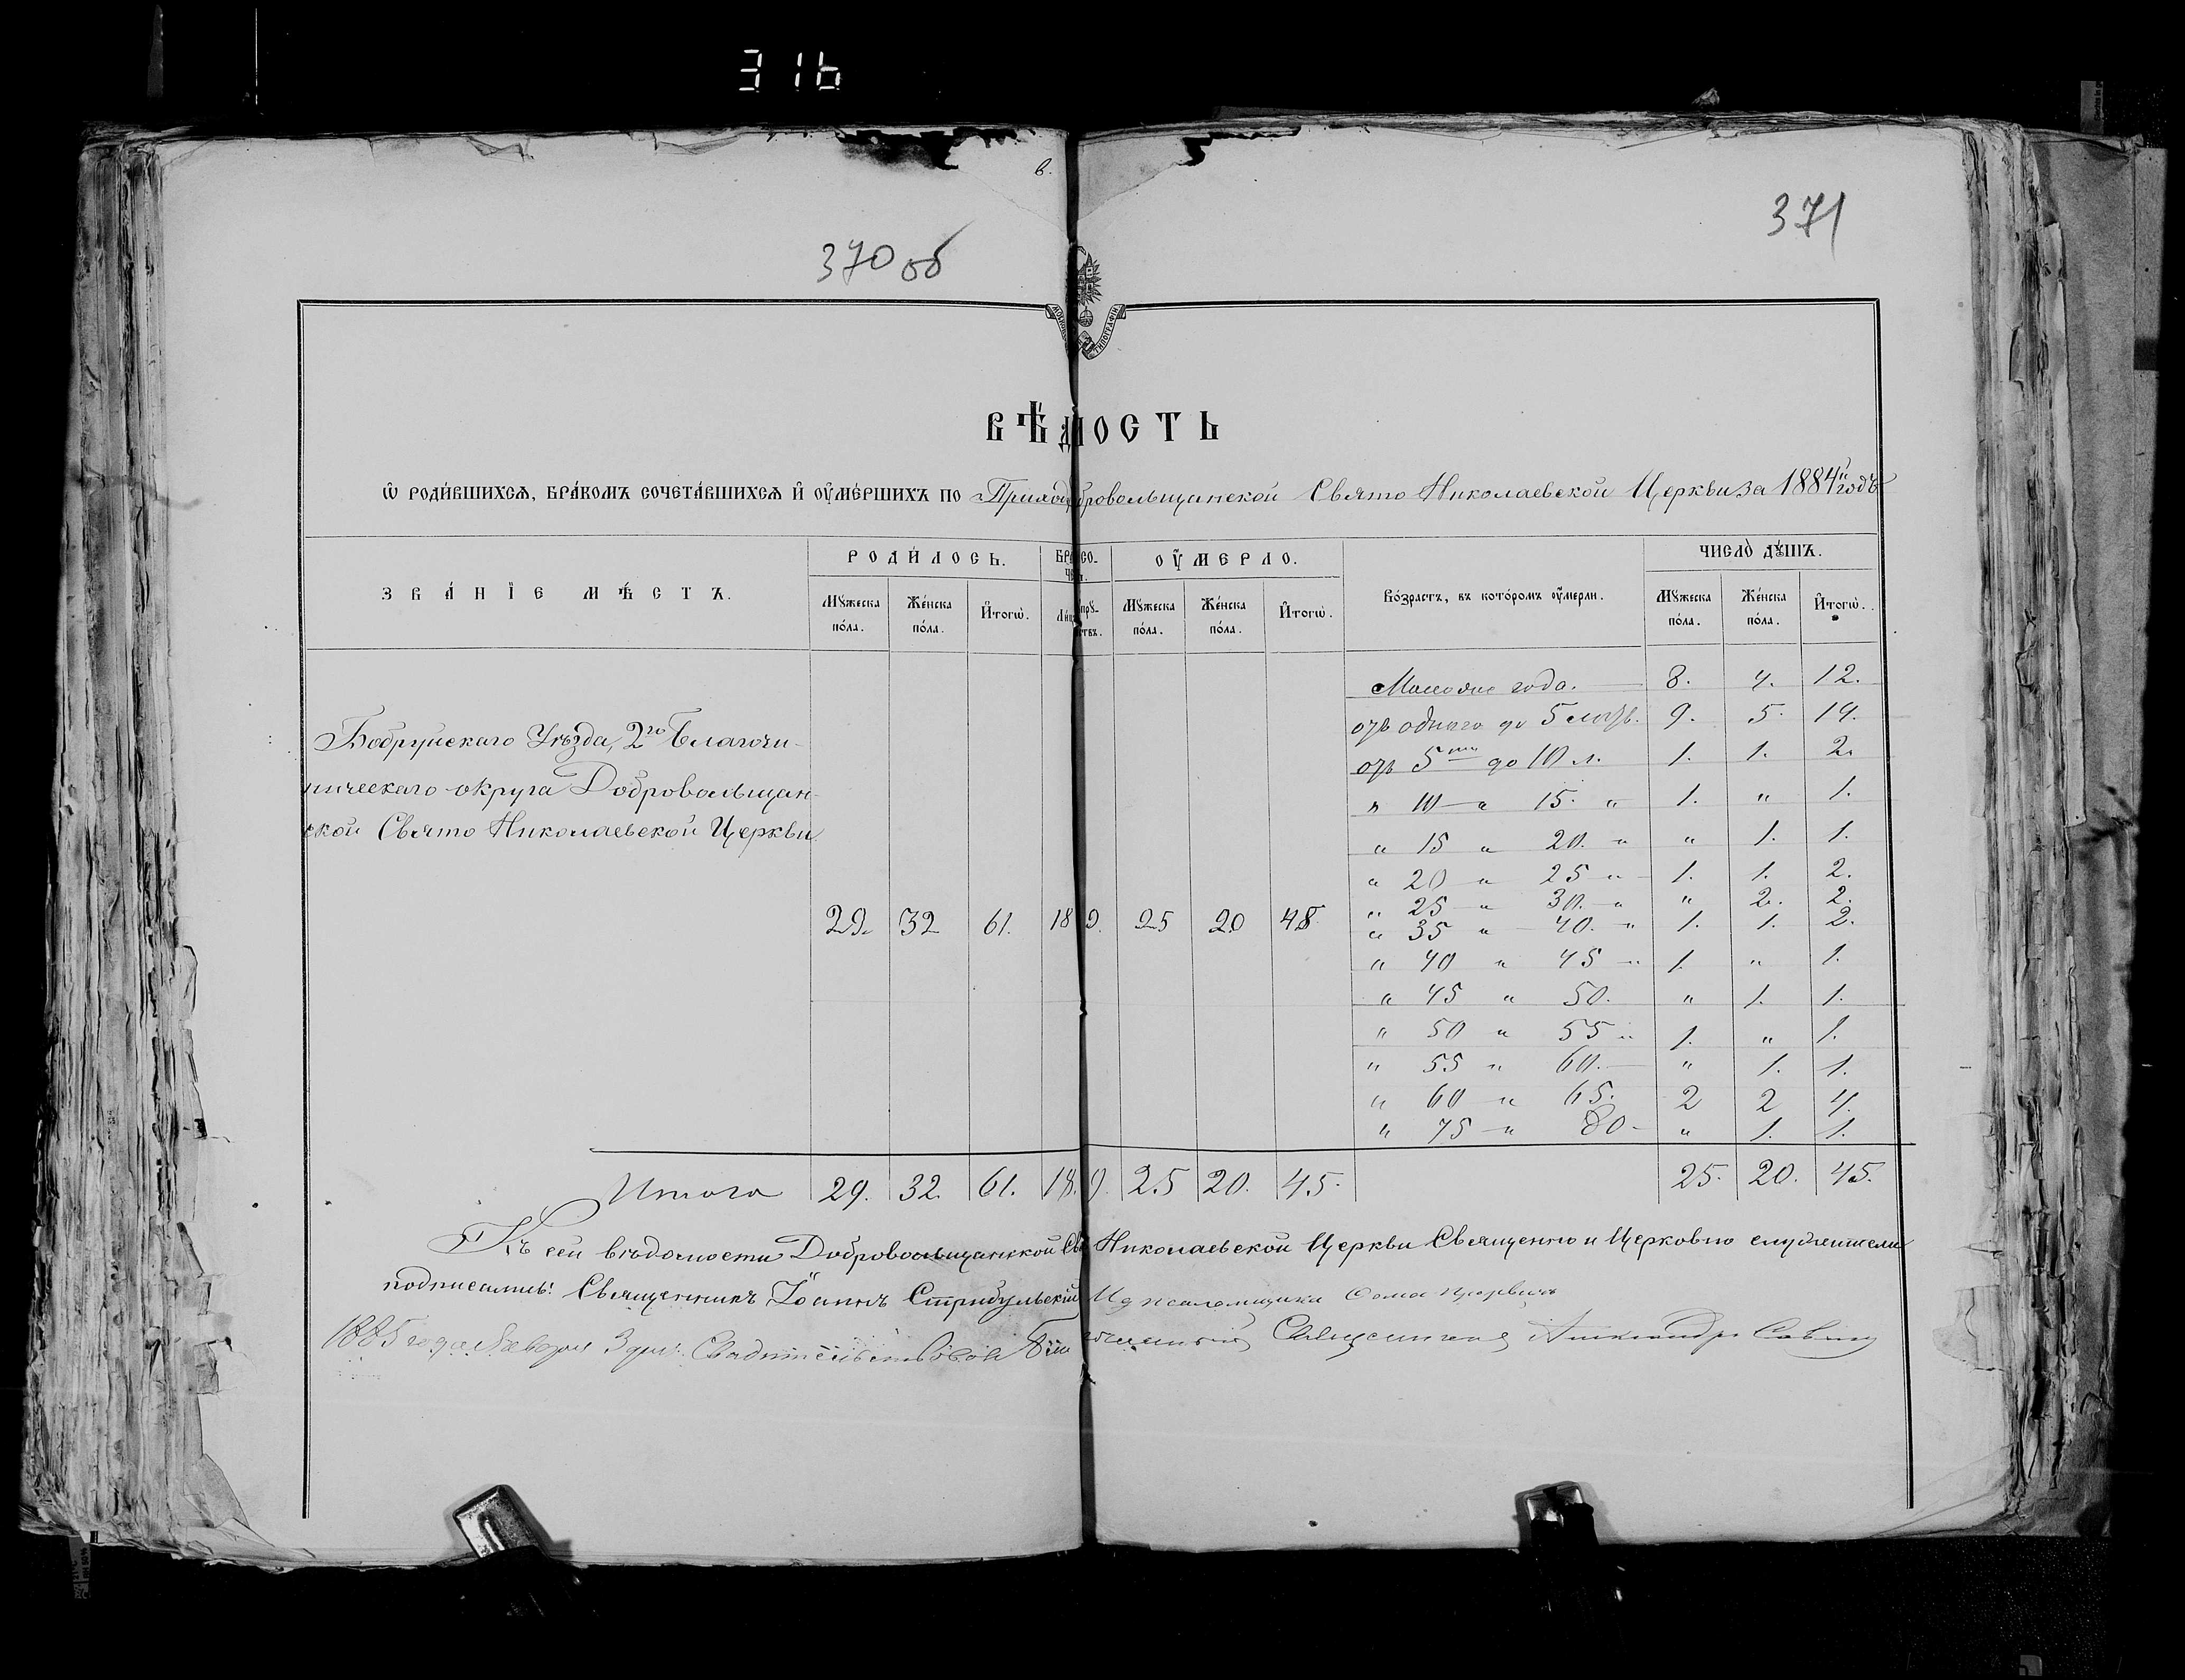 316
в.
370 об
371
ВѢДОМОСТЬ
Ѡ РОДИ́ВШИХСѦ, БРА́КОМЪ СОЧЕТА́ВШИХСѦ И҆ ОУ҆МЕ́РШИХЪ ПО Приход Добровольщинской Свято Николаевской Церкви за 1884й годъ
ЗВА́НІЕ МѢ́СТЪ.
РОДИ́ЛОСЬ.
БРА СО-
ЧЕ.
ОУ҆МЕРЛО.
Во́зрастъ, въ кото́ромъ оу҆мерли.
ЧИСЛО̀ ДꙊ́ШЪ.
Мꙋжеска по́ла.
Же́нска по́ла.
И҆тогѡ.
Мꙋжеска по́ла.
Же́нска по́ла.
И҆тогѡ.
Мꙋжеска по́ла.
Же́нска по́ла.
И҆тогѡ.
Бобруйскаго Уѣзда, 2го Благочи-
ническаго округа Добровольщин-
ской Свято Николаевской Церкви
29. 32 61. 18 9. 25 20 45.
Моложе года. 8. 4. 12.
отъ одного до 5 лѣтъ. 9. 5. 14.
отъ 5ти до 10 л. 1. 1. 2.
" 10 " 15. " 1. " 1.
" 15 " 20. " " 1. 1.
" 20 " 25 " 1. 1. 2.
" 25 " 30. " " 2. 2.
" 35 " 40. " 1. 1. 2.
" 40 " 45 " 1. " 1.
" 45 " 50. " 1. 1.
" 50 " 55 " 1. " 1.
" 55 " 60. " 1. 1.
" 60 " 65. 2 2 4.
" 75 " 80 " 1. 1.
Итого 29. 32. 61. 18. 9. 25 20. 45. 25. 20. 45.
Къ сей вѣдомости Добровольщинской Свя Николаевской Церкви Священно и Церковно служители
подписались: Священникъ Іоаннъ Стрибульскій И д псаломщика Фома
1885 года Января 3 дня. Свидѣтельствовалъ Благочинный Священникъ Александръ Савичъ